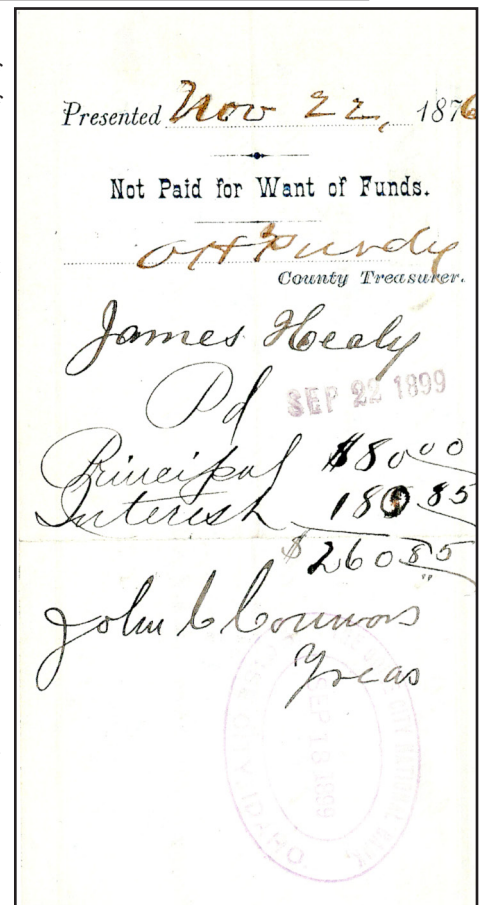 Presented Nov 22, 1876
Not Paid for Want of Funds.
O H Purdy
County Treasurer.
James Healy
Pd
SEP 22 1899
Principal $80 00
Interest 180 85
$260 85
John C Connors
Treas
CITY NATIONAL BANK
SEP 18 1899
OMAHA